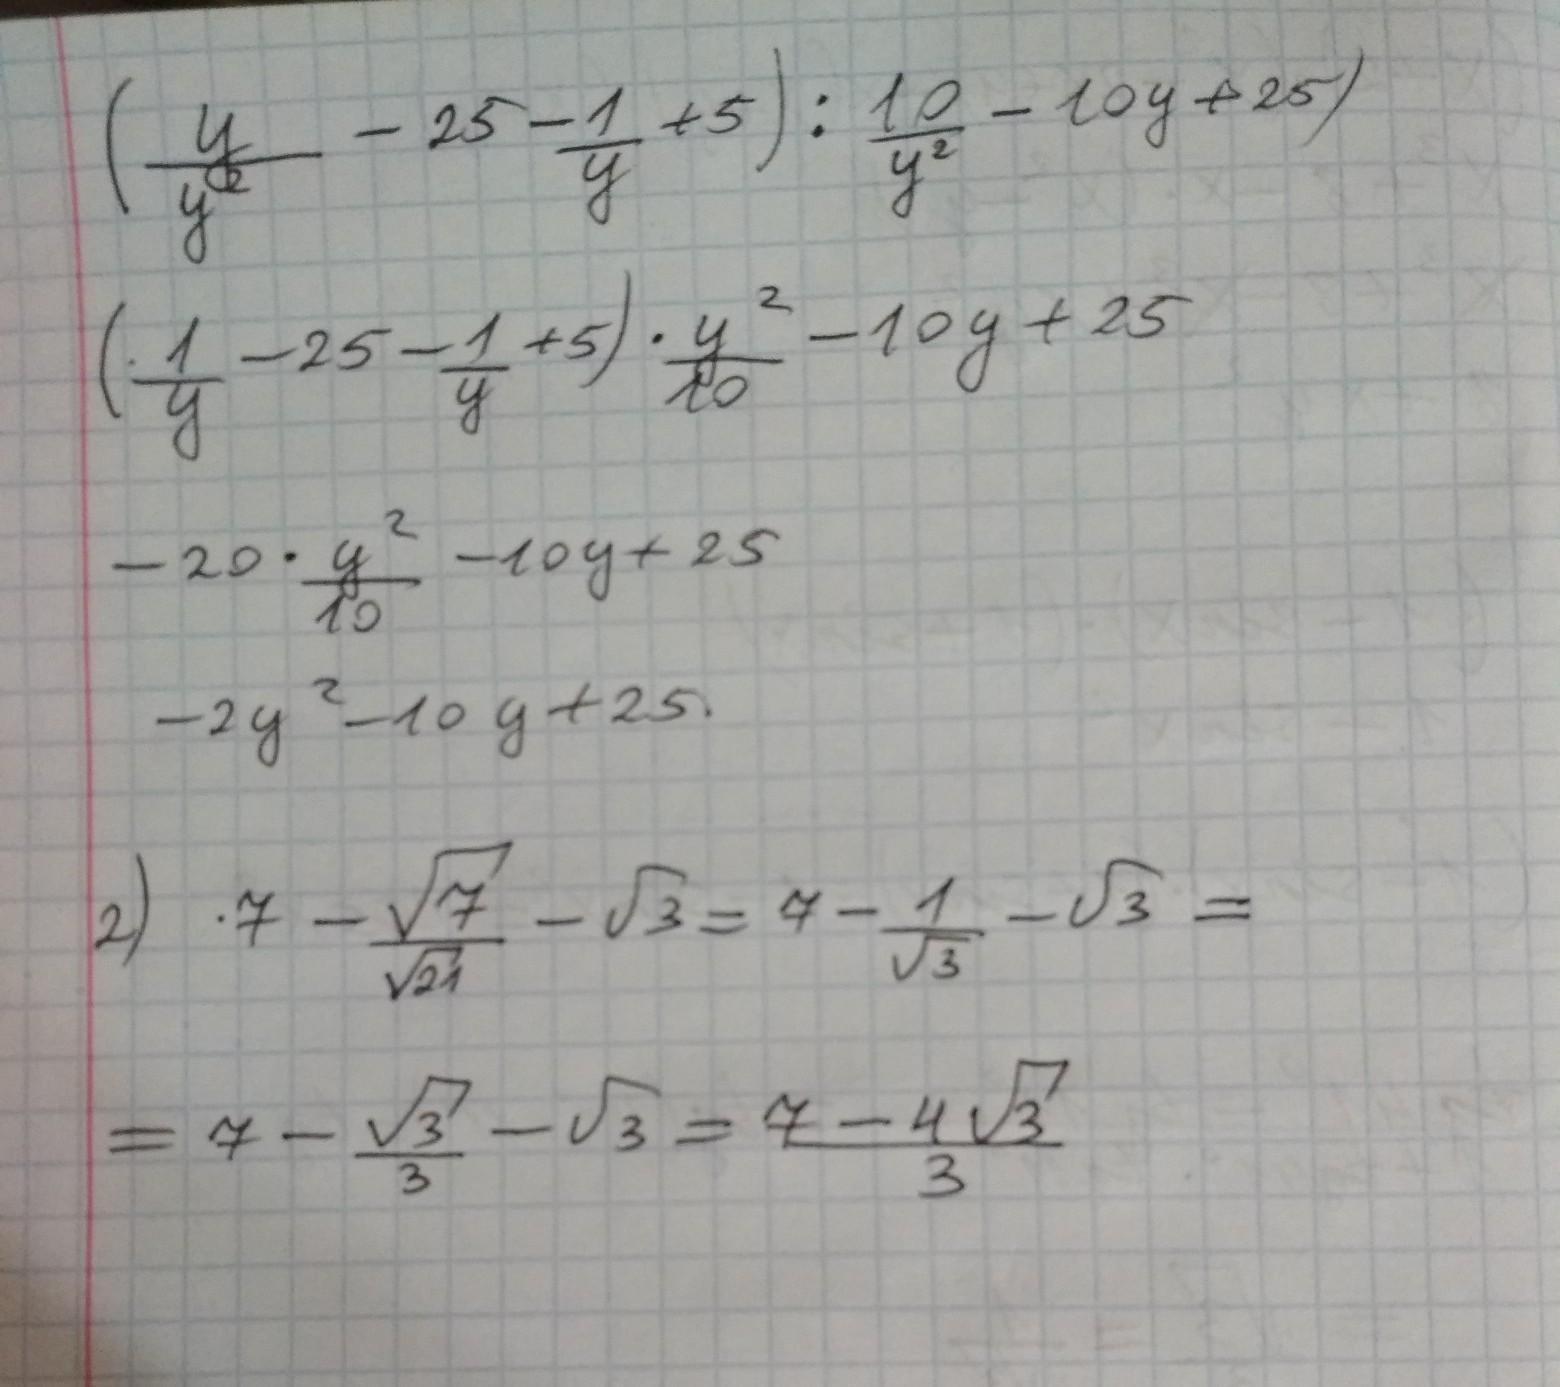 (y/y² - 25 - 1/y + 5) : 10/y² - 10y + 25)
(1/y - 25 - 1/y + 5) · y²/10 - 10y + 25
- 20 · y²/10 - 10y + 25
- 2y² - 10y + 25.
2) · 7 - √7/√21 - √3 = 7 - 1/√3 - √3 =
= 7 - √3/3 - √3 = (7 - 4√3)/3